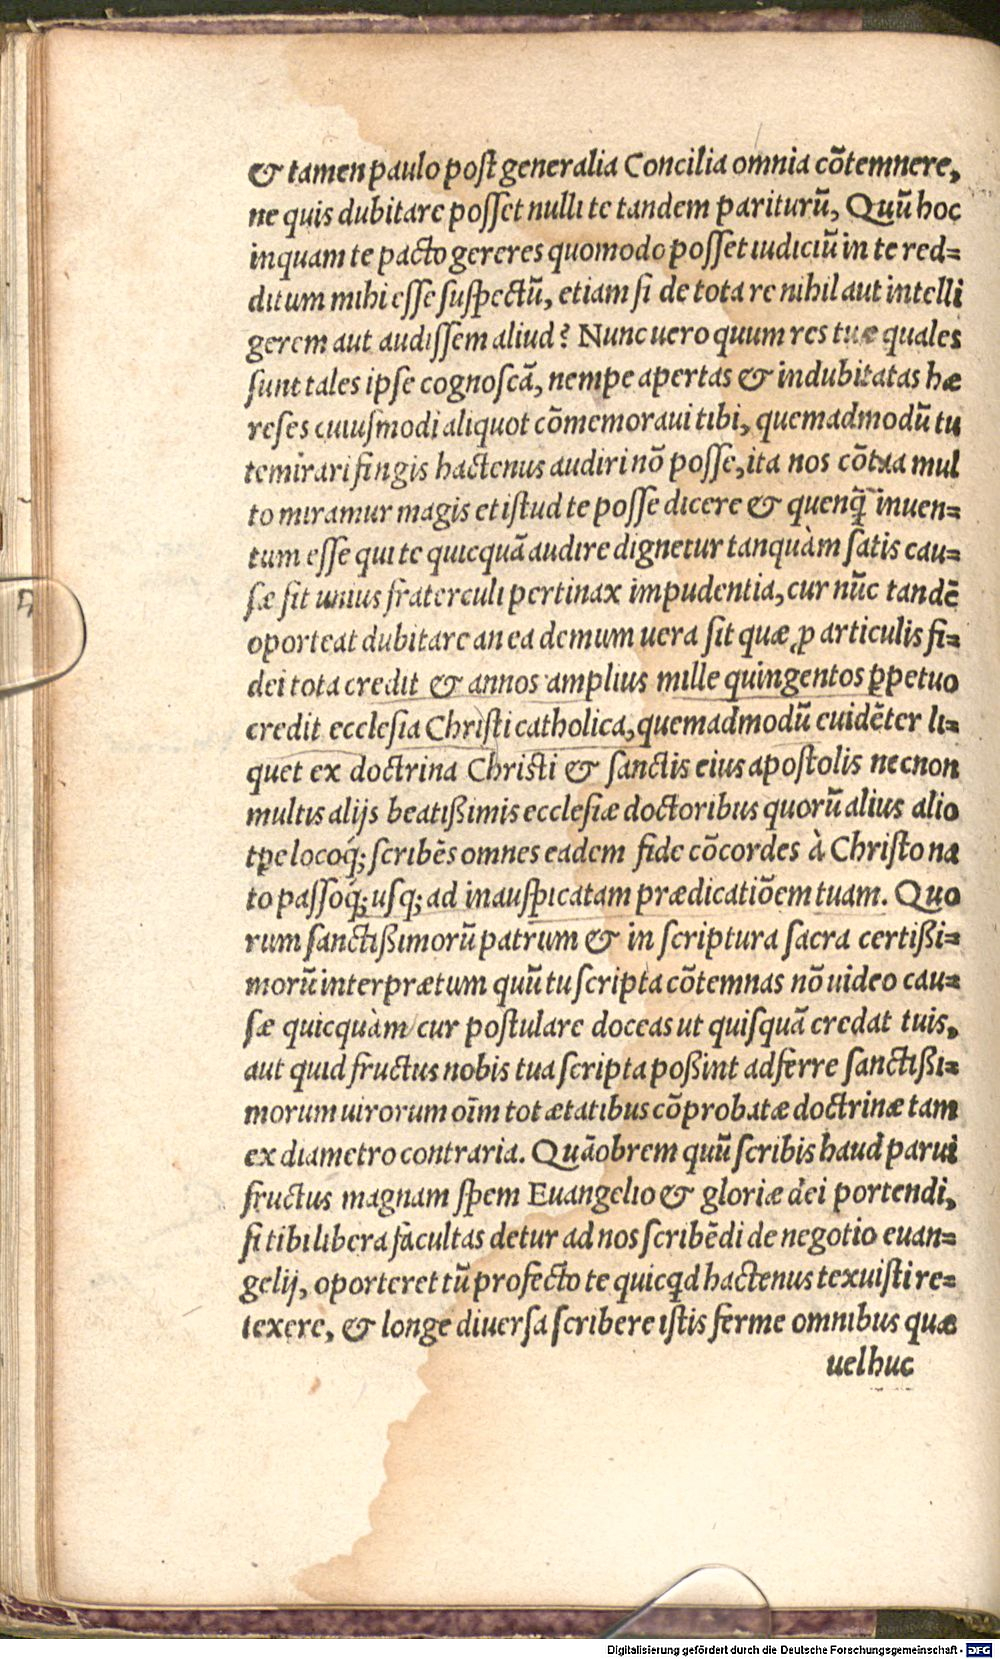 & tamen paulo post generalia Concilia omnia cōtemnere,
ne quis dubitare posset nulli te tandem pariturū, Quū hoc
inquam te pacto gereres quomodo posset iudiciū in te red=
ditum mihi esse suspectū, etiam si de tota re nihil aut intelli
gerem aut audissem aliud? Nunc uero quum res tuæ quales
sunt tales ipse cognoscā, nempe apertas & indubitatas hæ
reses cuiusmodi aliquot cōmemoraui tibi, quemadmodū tu
te mirari fingis hactenus audiri nō posse, ita nos cōtra mul
to miramur magis et istud te posse dicere & quenq̃ inuen=
tum esse qui te quicquā audire dignetur tanquàm satis cau=
sæ sit unius fraterculi pertinax impudentia, cur nūc tandē
oporteat dubitare an ea demum uera sit quæ ꝓ articulis fi=
dei tota credit & annos amplius mille quingentos ꝑpetuo
credit ecclesia Christi catholica, quemadmodū euidēter li=
quet ex doctrina Christi & sanctis eius apostolis necnon
multis alijs beatißimis ecclesiæ doctoribus quorū alius alio
tꝑe locoq́; scribēs omnes eadem fide cōcordes à Christo na
to passoq́; usq; ad inauspicatam prædicatiōem tuam. Quo
rum sanctißimorū patrum & in scriptura sacra certißi=
morū interprætum quū tu scripta cōtemnas nō uideo cau=
sæ quicquàm cur postulare doceas ut quisquā credat tuis,
aut quid fructus nobis tua scripta poßint adferre sanctißi=
morum uirorum oīm tot ætatibus cōprobatæ doctrinæ tam
ex diametro contraria. Quāobrem quū scribis haud parui
fructus magnam spem Euangelio & gloriæ dei portendi,
si tibi libera facultas detur ad nos scribēdi de negotio euan=
gelij, oporteret tū profecto te quicqd hactenus texuisti re=
texere, & longe diuersa scribere istis ferme omnibus quæ
uel huc
Digitalisierung gefördert durch die Deutsche Forschungsgemeinschaft - DFG